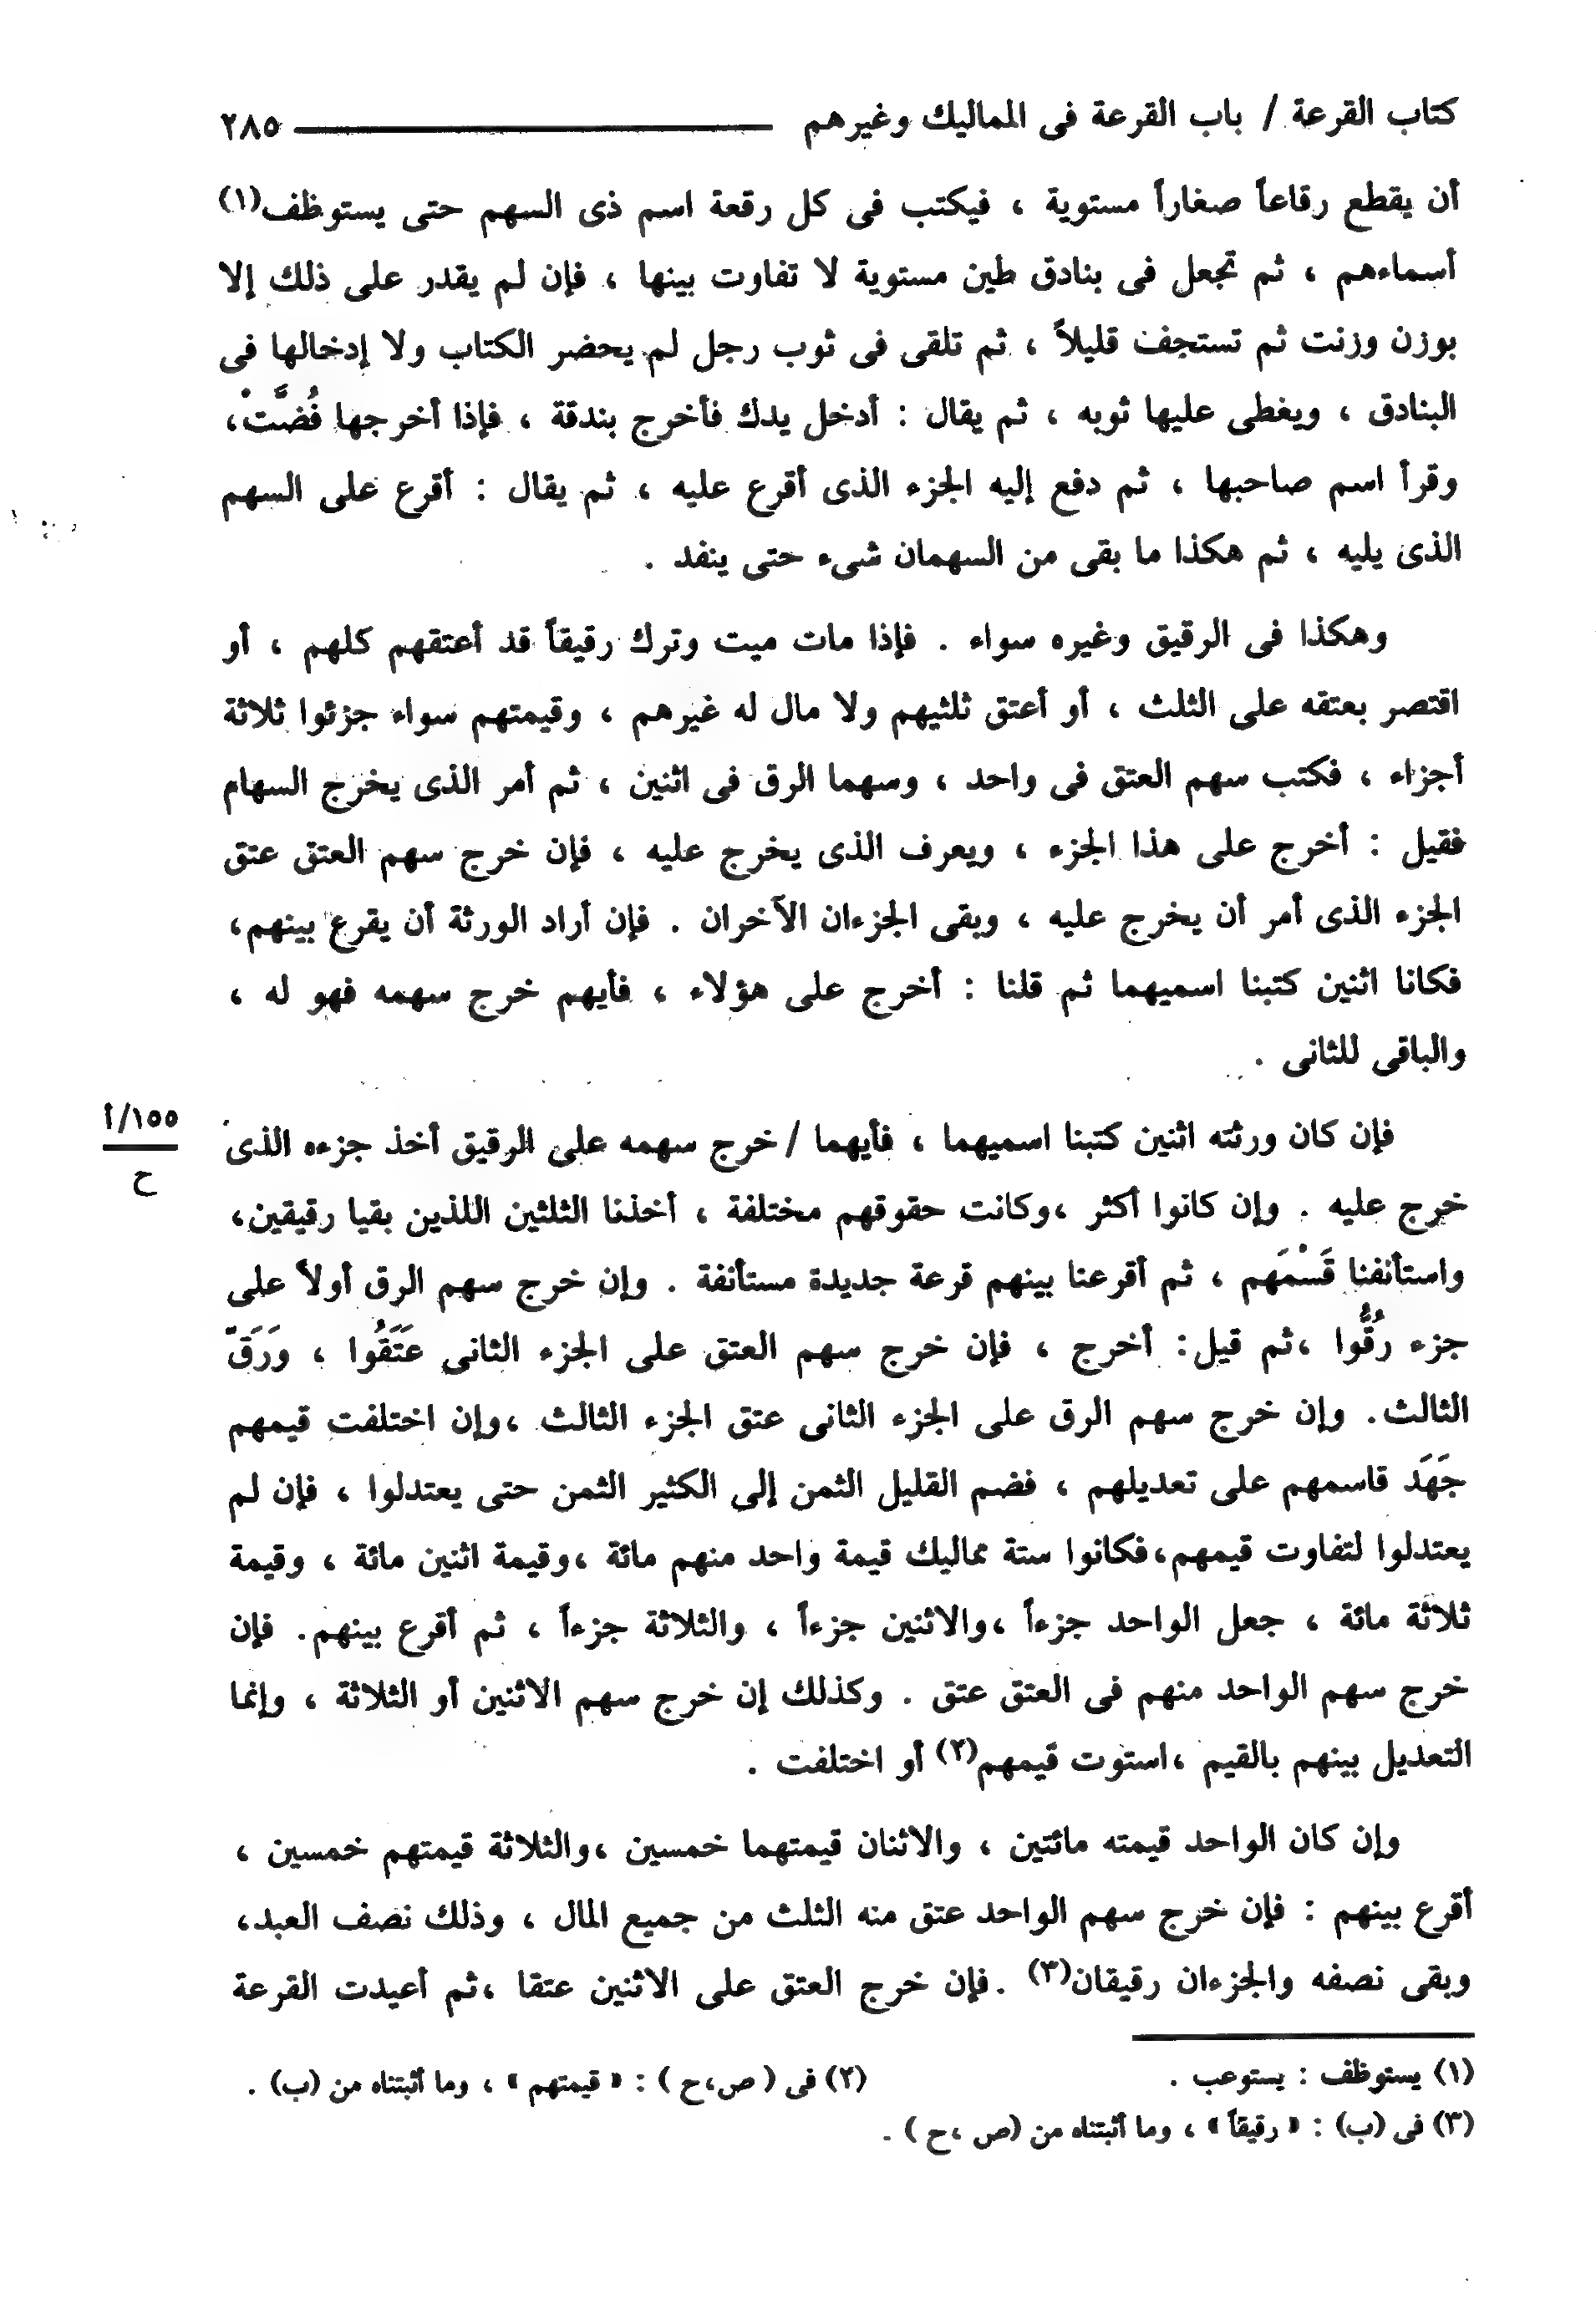 كتاب القرعة / باب القرعة فى المماليك وغيرهم ٢٨٥
أن يقطع رقاعاً صغاراً مستوية ، فيكتب فى كل رقعة اسم ذى السهم حتى يستوظف(١)
أسماءهم ، ثم تجعل فى بنادق طين مستوية لا تفاوت بينها ، فإن لم يقدر على ذلك إلا
بوزن وزنت ثم تستجف قليلاً ، ثم تلقى فى ثوب رجل لم يحضر الكتاب ولا إدخالها فى
البنادق ، ويغطى عليها ثوبه ، ثم يقال : أدخل يدك فأخرج بندقة ، فإذا أخرجها فُضَّتْ،
وقرأ اسم صاحبها ، ثم دفع إليه الجزء الذى أقرع عليه ، ثم يقال : أقرع على السهم
الذى يليه ، ثم هكذا ما بقى من السهمان شىء حتى ينفد .
وهكذا فى الرقيق وغيره سواء . فإذا مات ميت وترك رقيقاً قد أعتقهم كلهم ، أو
اقتصر بعتقه على الثلث ، أو أعتق ثلثيهم ولا مال له غيرهم ، وقيمتهم سواء جزئوا ثلاثة
أجزاء ، فكتب سهم العتق فى واحد ، وسهما الرق فى اثنين ، ثم أمر الذى يخرج السهام
فقيل : أخرج على هذا الجزء ، ويعرف الذى يخرج عليه ، فإن خرج سهم العتق عتق
الجزء الذى أمر أن يخرج عليه ، وبقى الجزءان الآخران . فإن أراد الورثة أن يقرع بينهم،
فكانا اثنين كتبنا اسميهما ثم قلنا : أخرج على هؤلاء ، فأيهم خرج سهمه فهو له ،
والباقى للثانى .
فإن كان ورثته اثنين كتبنا اسميهما ، فأيهما / خرج سهمه على الرقيق أخذ جزءه الذى
١٥٥/أ
ح
خرج عليه . وإن كانوا أكثر ،وكانت حقوقهم مختلفة ، أخذنا الثلثين اللذين بقيا رقيقين،
واستأنفنا قَسْمَهم ، ثم أقرعنا بينهم قرعة جديدة مستأنفة . وإن خرج سهم الرق أولاً على
جزء رُقُّوا ،ثم قيل: أخرج ، فإن خرج سهم العتق على الجزء الثانى عَتَقُوا ، وَرَقّ
الثالث. وإن خرج سهم الرق على الجزء الثانى عتق الجزء الثالث ،وإن اختلفت قيمهم
جَهَد قاسمهم على تعديلهم ، فضم القليل الثمن إلى الكثير الثمن حتى يعتدلوا ، فإن لم
يعتدلوا لتفاوت قيمهم،فكانوا ستة مماليك قيمة واحد منهم مائة ،وقيمة اثنين مائة ، وقيمة
ثلاثة مائة ، جعل الواحد جزءاً ،والاثنين جزءاً ، والثلاثة جزءاً ، ثم أقرع بينهم. فإن
خرج سهم الواحد منهم فى العتق عتق . وكذلك إن خرج سهم الاثنين أو الثلاثة ، وإنما
التعديل بينهم بالقيم ،استوت قيمهم(٢) أو اختلفت .
وإن كان الواحد قيمته مائتين ، والاثنان قيمتهما خمسين ،والثلاثة قيمتهم خمسين ،
أقرع بينهم : فإن خرج سهم الواحد عتق منه الثلث من جميع المال ، وذلك نصف العبد،
وبقى نصفه والجزءان رقيقان(٣) .فإن خرج العتق على الاثنين عتقا ،ثم أعيدت القرعة
(١) يستوظف : يستوعب . (٢) فى ( ص،ح ) : « قيمتهم » ، وما أثبتناه من (ب) .
(٣) فى (ب) : « رقيقاً » ، وما أثبتناه من (ص ،ح ) .